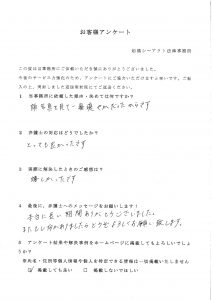 お客様アンケート
船橋シーアクト法律事務所
この度は当事務所にご依頼いただき誠にありがとうございました。
今後のサービス向上のため、アンケートにご協力いただけますと幸いです。ご記
入の上、同封しました返信用封筒にてご返送ください。
1 当事務所に依頼した理由・決め手は何ですか?
顔写真を見て一番
2 弁護士の対応はどうでしたか?
とっても良かったです
3 実際に解決したときのご感想は?
嬉しかったです
4 最後に、弁護士へのメッセージをお願いします!
本当に長い期間ありがとうございました。
またなにかありましたらどうぞよろしくお願い致します。
5 アンケート結果や解決事例をホームページに掲載してもよろしいでしょうか?
※氏名・住所等個人情報や個人を特定できる情報は一切掲載いたしません
☑ 掲載しても良い □ 掲載しないでほしい